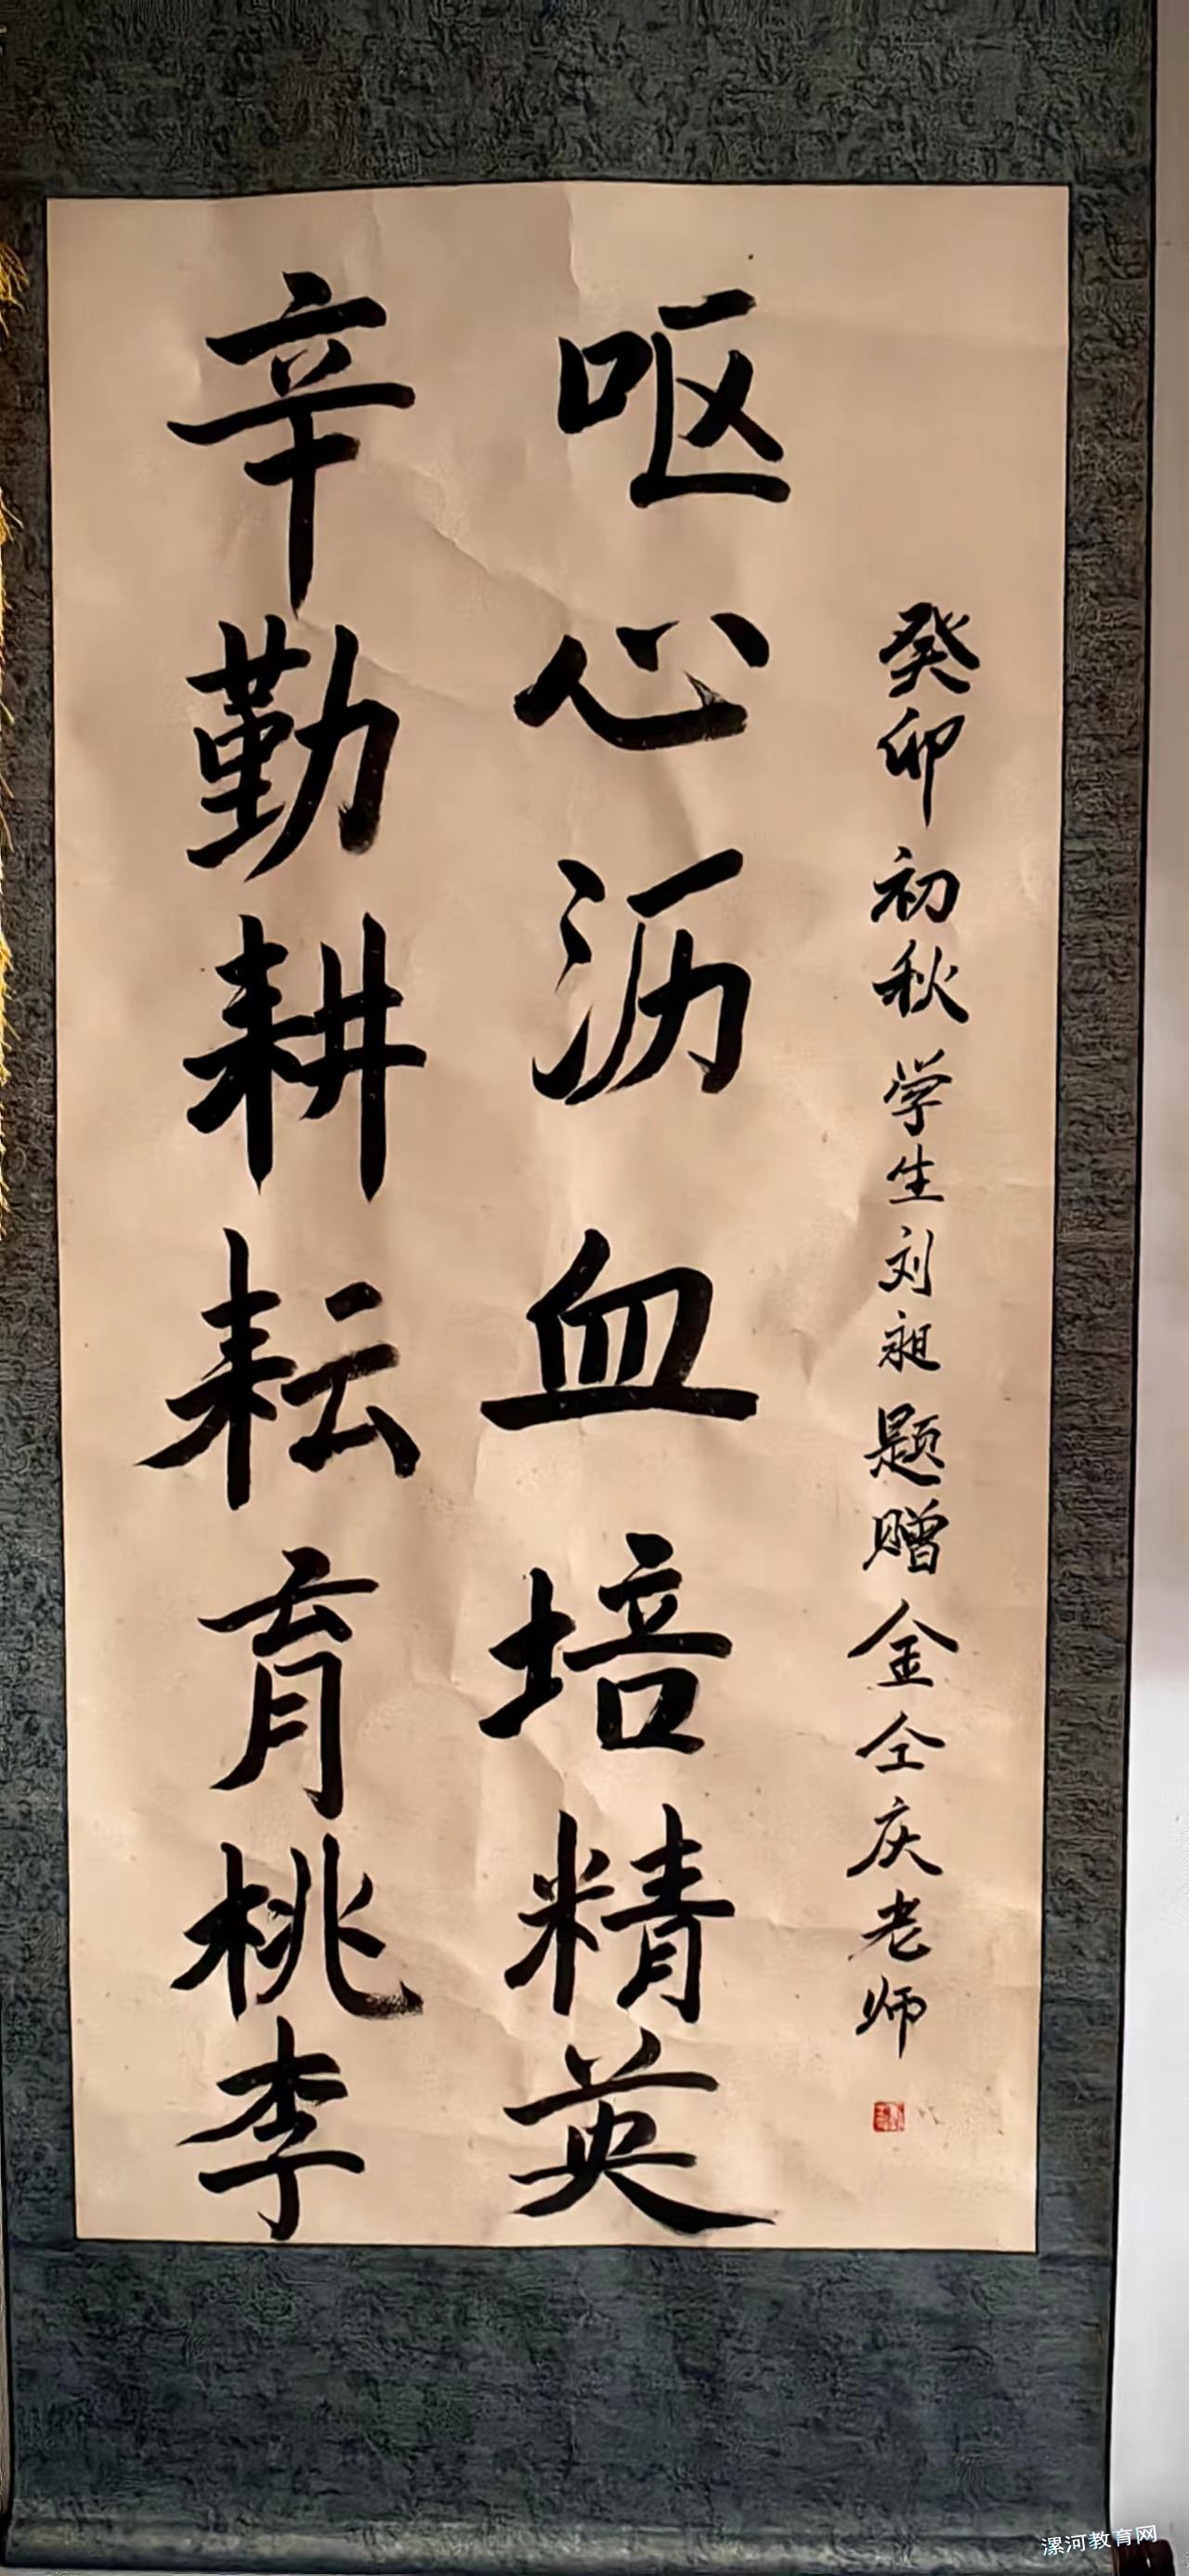 癸卯初秋学生刘昶题赠金仝庆老师
呕心沥血培精英
辛勤耕耘育桃李
漯河教育网